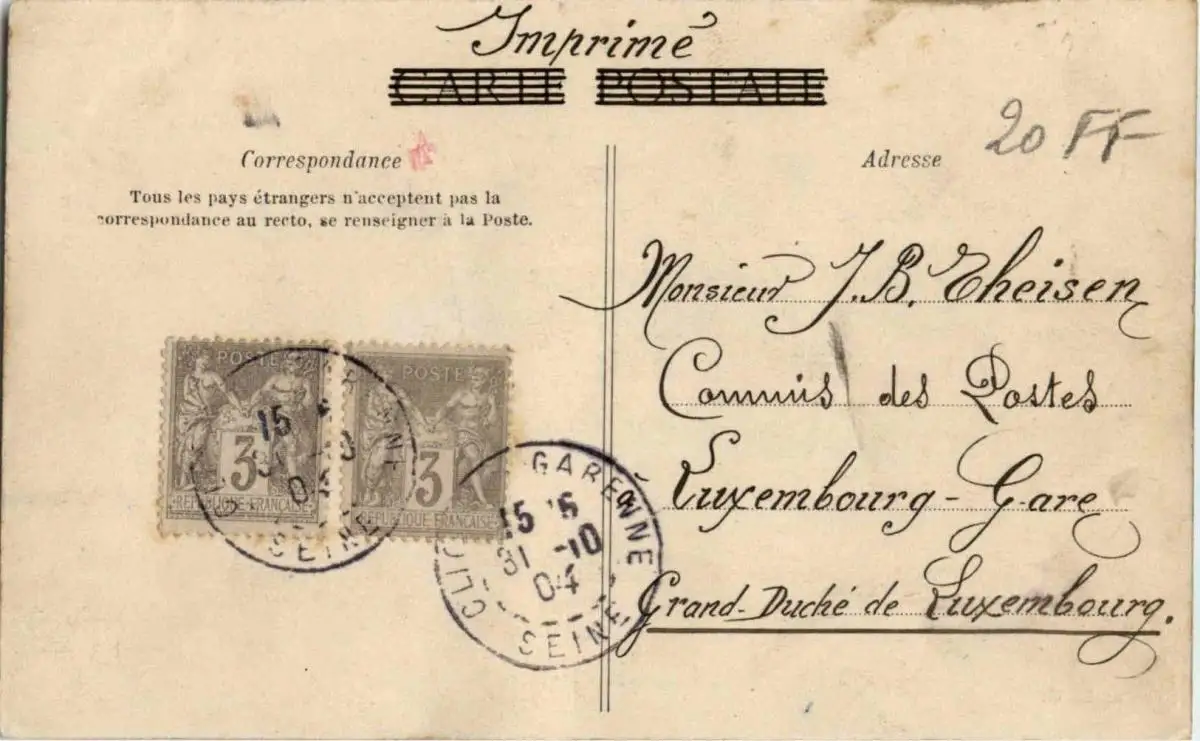 Imprimé
CARTE POSTALE
20 FF
Correspondance
Adresse
Tous les pays étrangers n'acceptent pas la
correspondance au recto, se renseigner à la Poste.
Monsieur J. B. Theisen
Commis des Postes
à
Luxembourg-Gare
Grand-Duché de Luxembourg.
POSTE
3
REPUBLIQUE FRANÇAISE
POSTE
3
REPUBLIQUE FRANÇAISE
GARENNE
15
31
SEINE
GARENNE
15
31 -10
04
SEINE